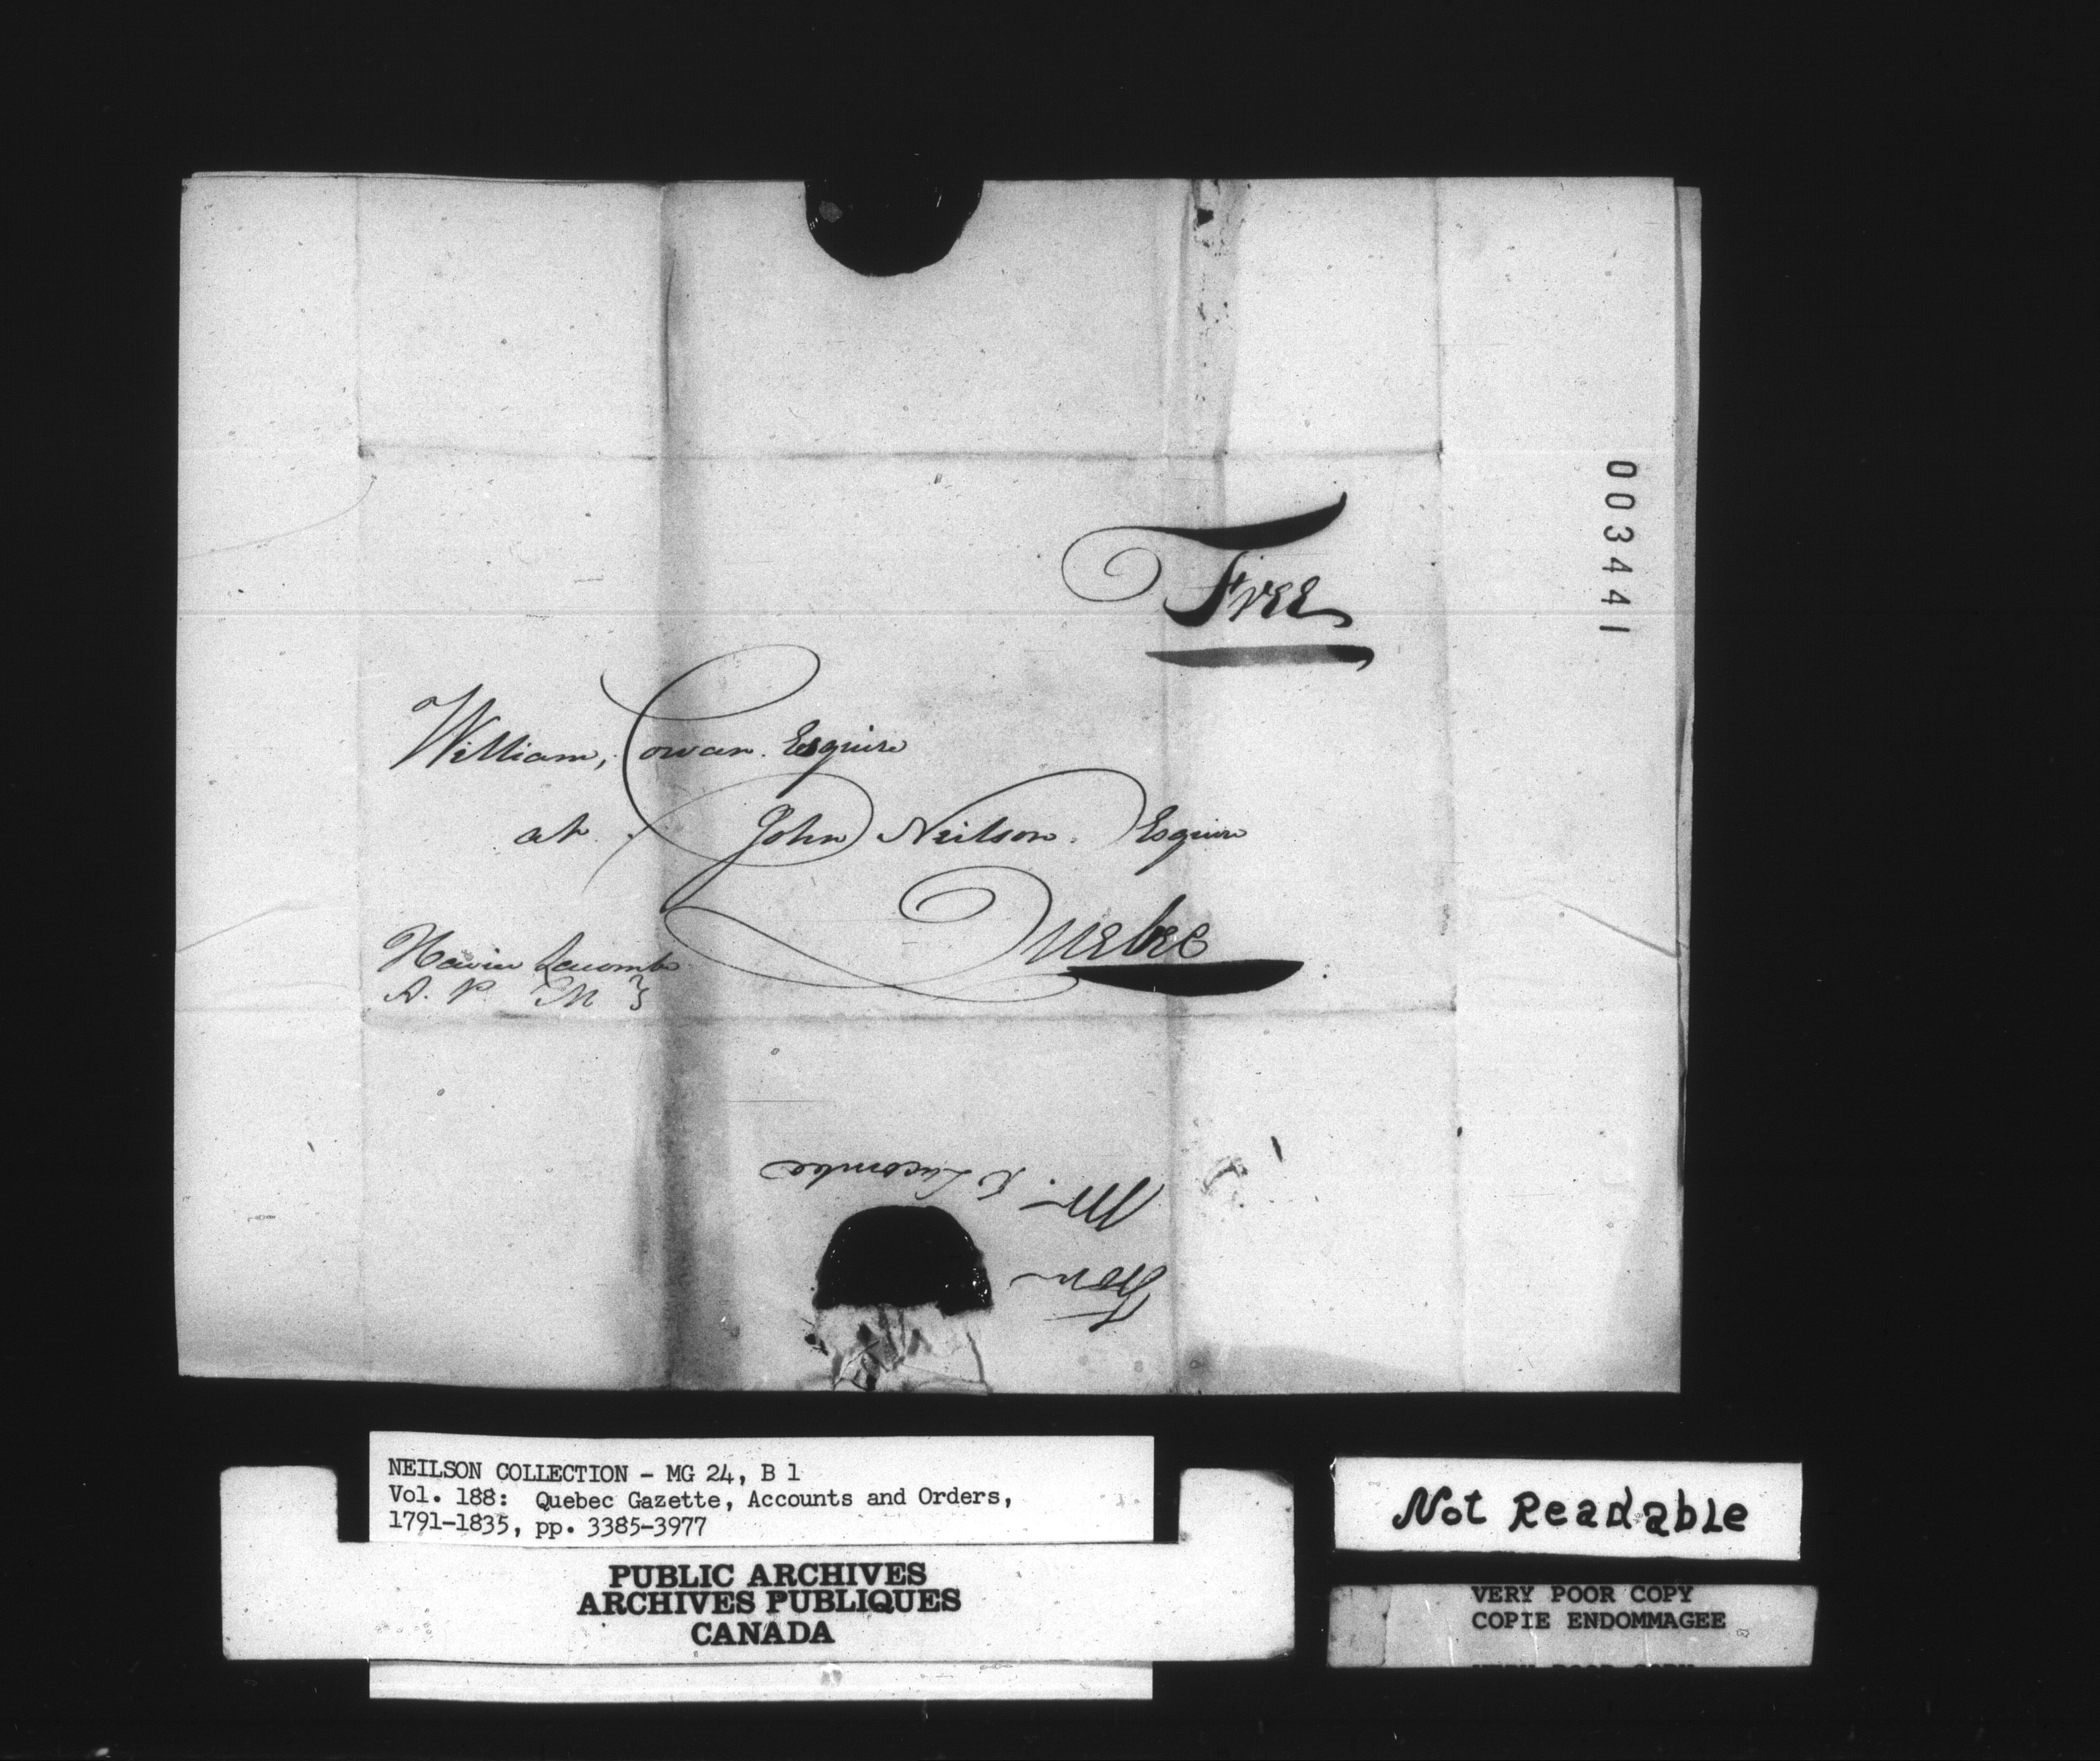 003441
Free
William, Cowan. Esquire
at John Neilson. Esquire
Quebec
Lacombe
A. P. M
From
Mr. X Lacombe
NEILSON COLLECTION - MG 24, B 1
Vol. 188: Quebec Gazette, Accounts and Orders,
1791-1835, pp. 3385-3977
PUBLIC ARCHIVES
ARCHIVES PUBLIQUES
CANADA
Not Readable
VERY POOR COPY
COPIE ENDOMMAGEE